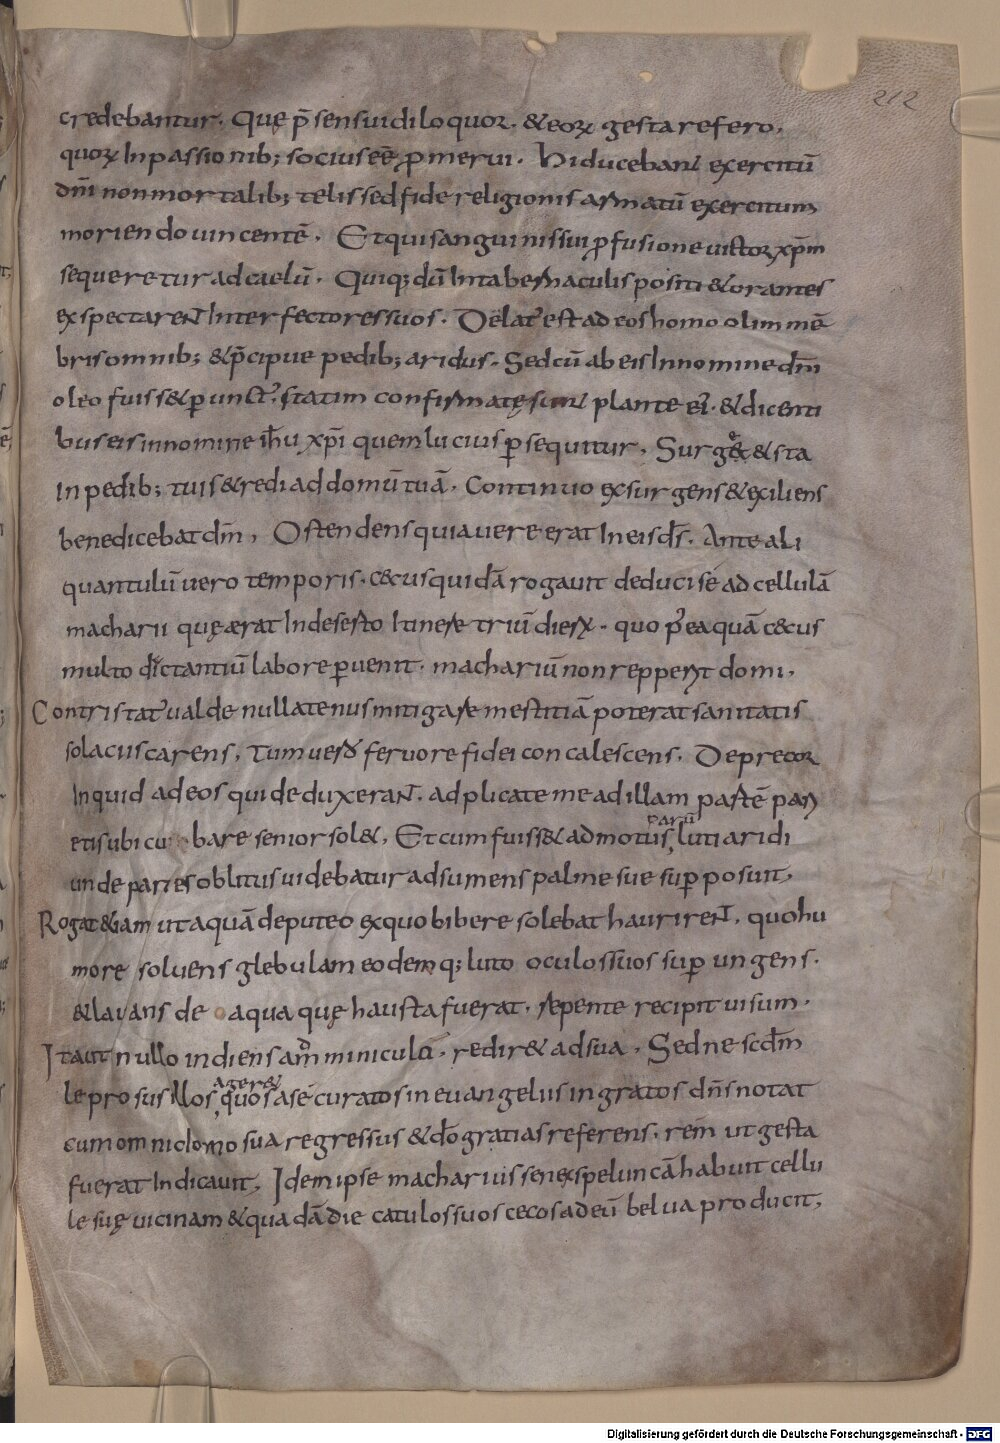 212
credebantur. Quę p̄sensuidiloquor. &eorꝝ gestarefero.
quorꝝ Inpassionib; sociusee᷒̄ ꝓmerui. Hiducebant exercitū
dnī nonmortalib; telissedfide religionis armatū exercitum
moriendo uincentē. Etquisanguinissui ꝓfusione uictorꝝ xp̄m
sequeretur adcaelū. Quiq; dū Intabernaculis positi &orantes
exspectarent Interfectoressuos. Delat᷒ est ad eos homo olim mē
bris omnib; &p̄cipue pedib; aridus. Sedcū ab eis Innomine dn̄i
oleo fuiss& ꝑunct᷒. statim confirmatę sunt plante ei᷒. &dicenti
bus eis innomine ih̄u xp̄i quem lucius ꝑsequitur. Surgę &sta
In pedib; tuis &redi ad domū tuā. Continuo exsurgens &exiliens
benedicebat dn̄m, Ostendens quia uere erat In eis ds̄. Ante ali
quantulū uero temporis. c&cus quidā rogauit deduci se ad cellulā
macharii quęærat Indeserto Itinere triū dierꝝ. quo p᷒ eaquā c&cus
multo dictantiū labore ꝑuenit. machariū non repperit domi.
Contristat᷒ ualde nullatenus mitigare mestitiā poterat sanitatis
solacus carens, Tum uero feruore fidei concalescens. Deprecor
Inquid ad eos qui deduxerant. adplicate me ad illam partē pari
etis ubi cubare senior sol&, Et cum fuiss& admotus, luti aridi
parū
unde paries oblitus uidebatur adsumens palme sue suꝑposuit,
Rogat &iam ut aquā de puteo exquo bibere solebat haurirent. quo hu
more soluens glebulam eodemq; luto oculos suos suꝑungens.
&lauans de aqua quę hausta fuerat. repente recipit uisum.
Ita ut nullo indiens amminiculo. redir& ad sua. Sed ne scd̄m
leprosus Illos, quos a se curatos in euangelius ingratos dn̄s notat
ager&
cum omni domo sua regressus &dō gratias referens. rem ut gesta
fuerat Indicauit, Idem ipse macharius senex speluncā habuit cellu
le suę uicinam &quadā die catulos suos cecos ad eū belua producit,
Digitalisierung gefördert durch die Deutsche Forschungsgemeinschaft - DFG